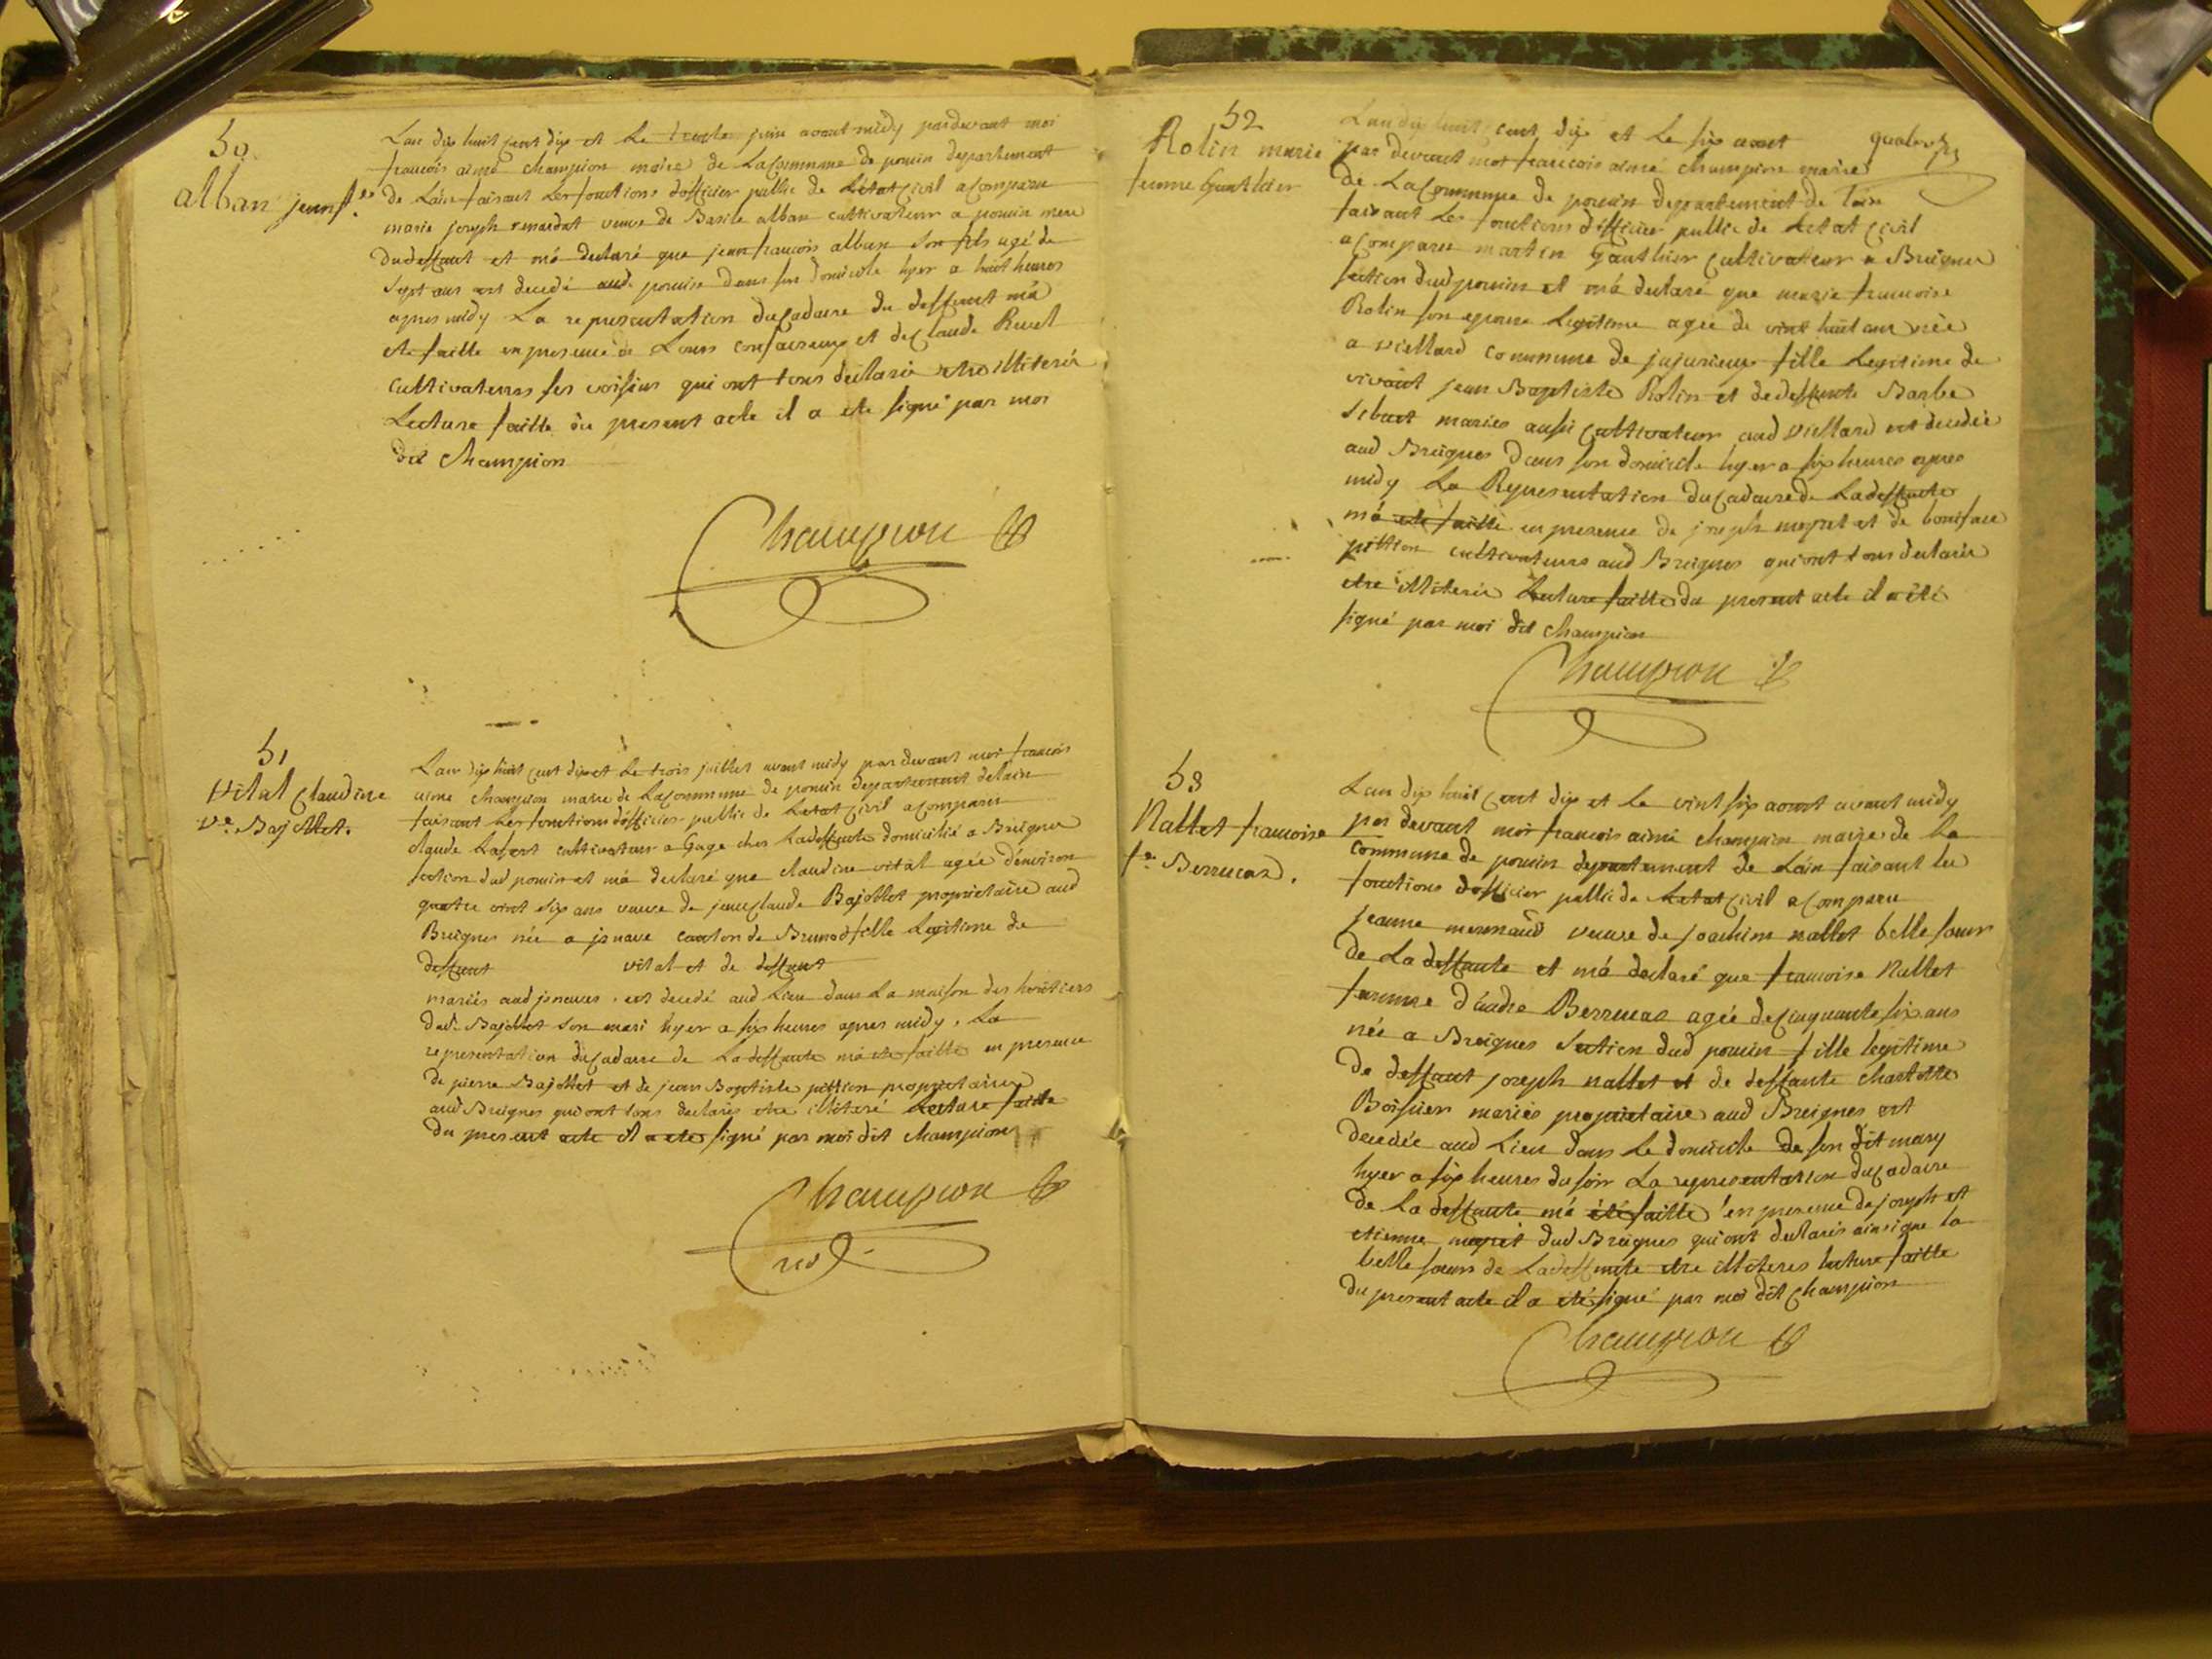 50
alban jean f.ois
Lan dix huit cent dix et le trente juin avant midy pardevant moi
francois aimé champion maire de la Commune de poncin departement
de Lain faisant les fonctions dofficier public de Letat Civil a Comparu
marie joseph renardat veuve de Basile alban cultivateur a poncin mere
dudeffunt et má declaré que jean francois alban son fils agé de
sept ans est decedé aud. poncin dans son domicile hyer a huit heures
apres midy La representation du Cadavre du deffunt má
ete faitte en presence de Louis et de Claude Ruet
Cultivateurs ses voisins qui ont tous declarés etre illiterés
Lecture faitte du present acte il a ete signé par moi
dit champion
Champion
51
Vital Claudine
v.e Bajollet.
Lan dix huit cent dix et Le trois juillet avant midy par devant moi francois
aimé champion maire de La Commune de poncin departement de lain
faisant Les fonctions dofficier public de Letat Civil a Comparu
claude Lafont cultivateur a Gage ches Ladeffunte domicilié a Breignes
section dud poncin et má declaré que claudine vital agée d'environ
quatre vint six ans veuve de jean Claude Bajollet proprietaire aud
Breignes née a jsnave canton de fille Legitime de
deffunt vital et de deffunt
mariés aud jsnaves . est decedé aud Lieu dans La maison des heritiers
dud. Bajollet son mari hyer a six heures apres midy . La
representation du Cadavre de La deffunte má ete faitte en presence
de pierre Bajollet et de jean Baptiste pittion proprietaires
aud Breignes qui ont tous declarés etre illiteré Lecture faitte
du present acte il a ete signé par moi dit champion
Champion
52
Rolin marie
femme Gauthier
Lan dix huit cent dix et Le six aout
par devant moi francois aimé champion maire
de La Commune de poncin departement de Lain
faisant Les fonctions d'officier public de Letat Civil
a Comparu martin Gauthier Cultivateur a Breignes
section dud poncin et má declaré que marie francoise
Rolin son epouse Legitime agée de vint huit ans née
a viellard commune de jujurieux fille Legitime de
vivant jean Baptiste Rolin et de deffunte Barbe
mariés aussi Cultivateur aud viellard est decedée
aud Breignes dans son domicile hyer a six heures apres
midy La Representation du Cadavre de La deffunte
má ete faitte en presence de joseph megret et de boniface
pittion cultivateurs aud Breignes qui ont tous declarés
etre illiterés Lecture faitte du present acte il a été
signé par moi dit champion
Champion
53
Nallet francoise
f.e Berrucas.
Lan dix huit Cent dix et Le vint six aout avant midy
par devant moi francois aimé champion maire de La
Commune de poncin departement de Láin faisant les
fonctions dofficier public de Letat Civil a Comparu
jeanne veuve de joachim nallet belle sœur
de La deffunte et má declaré que francoise Nallet
femme d'andre Berrucas agée de Cinquante six ans
née a Breignes Section dud poncin fille legitime
de deffunt joseph nallet et de deffunte charlotte
Boissier mariés proprietaire aud Breignes est
decedée aud Lieu dans Le domicile de son dit mary
hyer a six heures du soir La representation du Cadavre
de La deffunte má été faitte en presence de joseph et
etienne megret dud Breignes qui ont declarés ainsi que la
belle sœur de La deffunte etre illiteres lecture faitte
du present acte il a eté signé par moi dit Champion
Champion